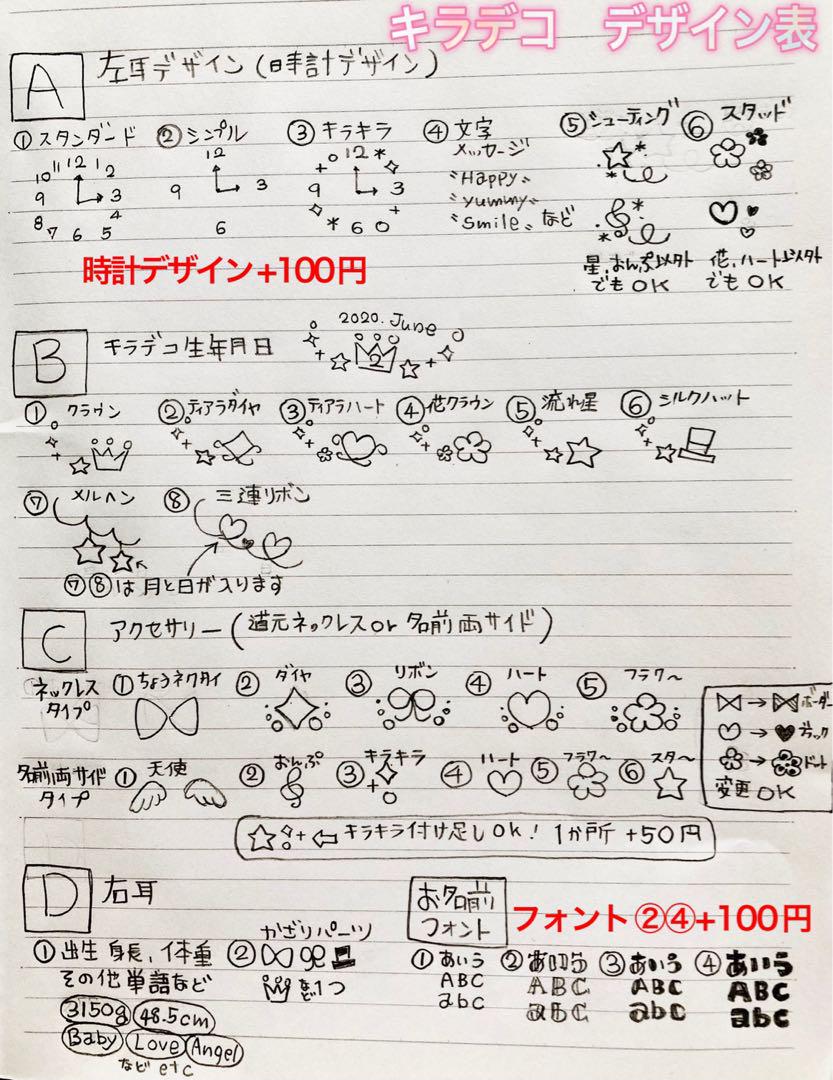 キラデコ デザイン表
A 左耳デザイン(時計デザイン)
①スタンダード ②シンプル ③キラキラ ④文字 ⑤シューティング ⑥スタッド
メッセージ
"Happy"
"yummy"
"Smile" など
12 1 2 3 4 5 6 7 8 9 10 11
12 3 6 9
12 3 6 9
星、おんぷ以外でもOK
花、ハート以外でもOK
時計デザイン+100円
B キラデコ生年月日
2020. June
2
①クラウン ②ティアラダイヤ ③ティアラハート ④花クラウン ⑤流れ星 ⑥シルクハット
⑦メルヘン ⑧三連リボン
⑦⑧は月と日が入ります
C アクセサリー(道元ネックレスor名前両サイド)
ネックレスタイプ ①ちょうネクタイ ②ダイヤ ③リボン ④ハート ⑤フラワ〜
→ボーダー
→ブラック
→ドット
変更OK
名前両サイドタイプ ①天使 ②おんぷ ③キラキラ ④ハート ⑤フラワ〜 ⑥スタ〜
キラキラ付け足しOK! 1か所+50円
D 右耳
①出生 身長、体重
その他単語など
3150g 48.5cm
Baby Love Angel
など etc
②かざりパーツ
など1つ
お名前フォント
フォント②④+100円
①あいう ②あいう ③あいう ④あいう
ABC ABC ABC ABC
abc abc abc abc